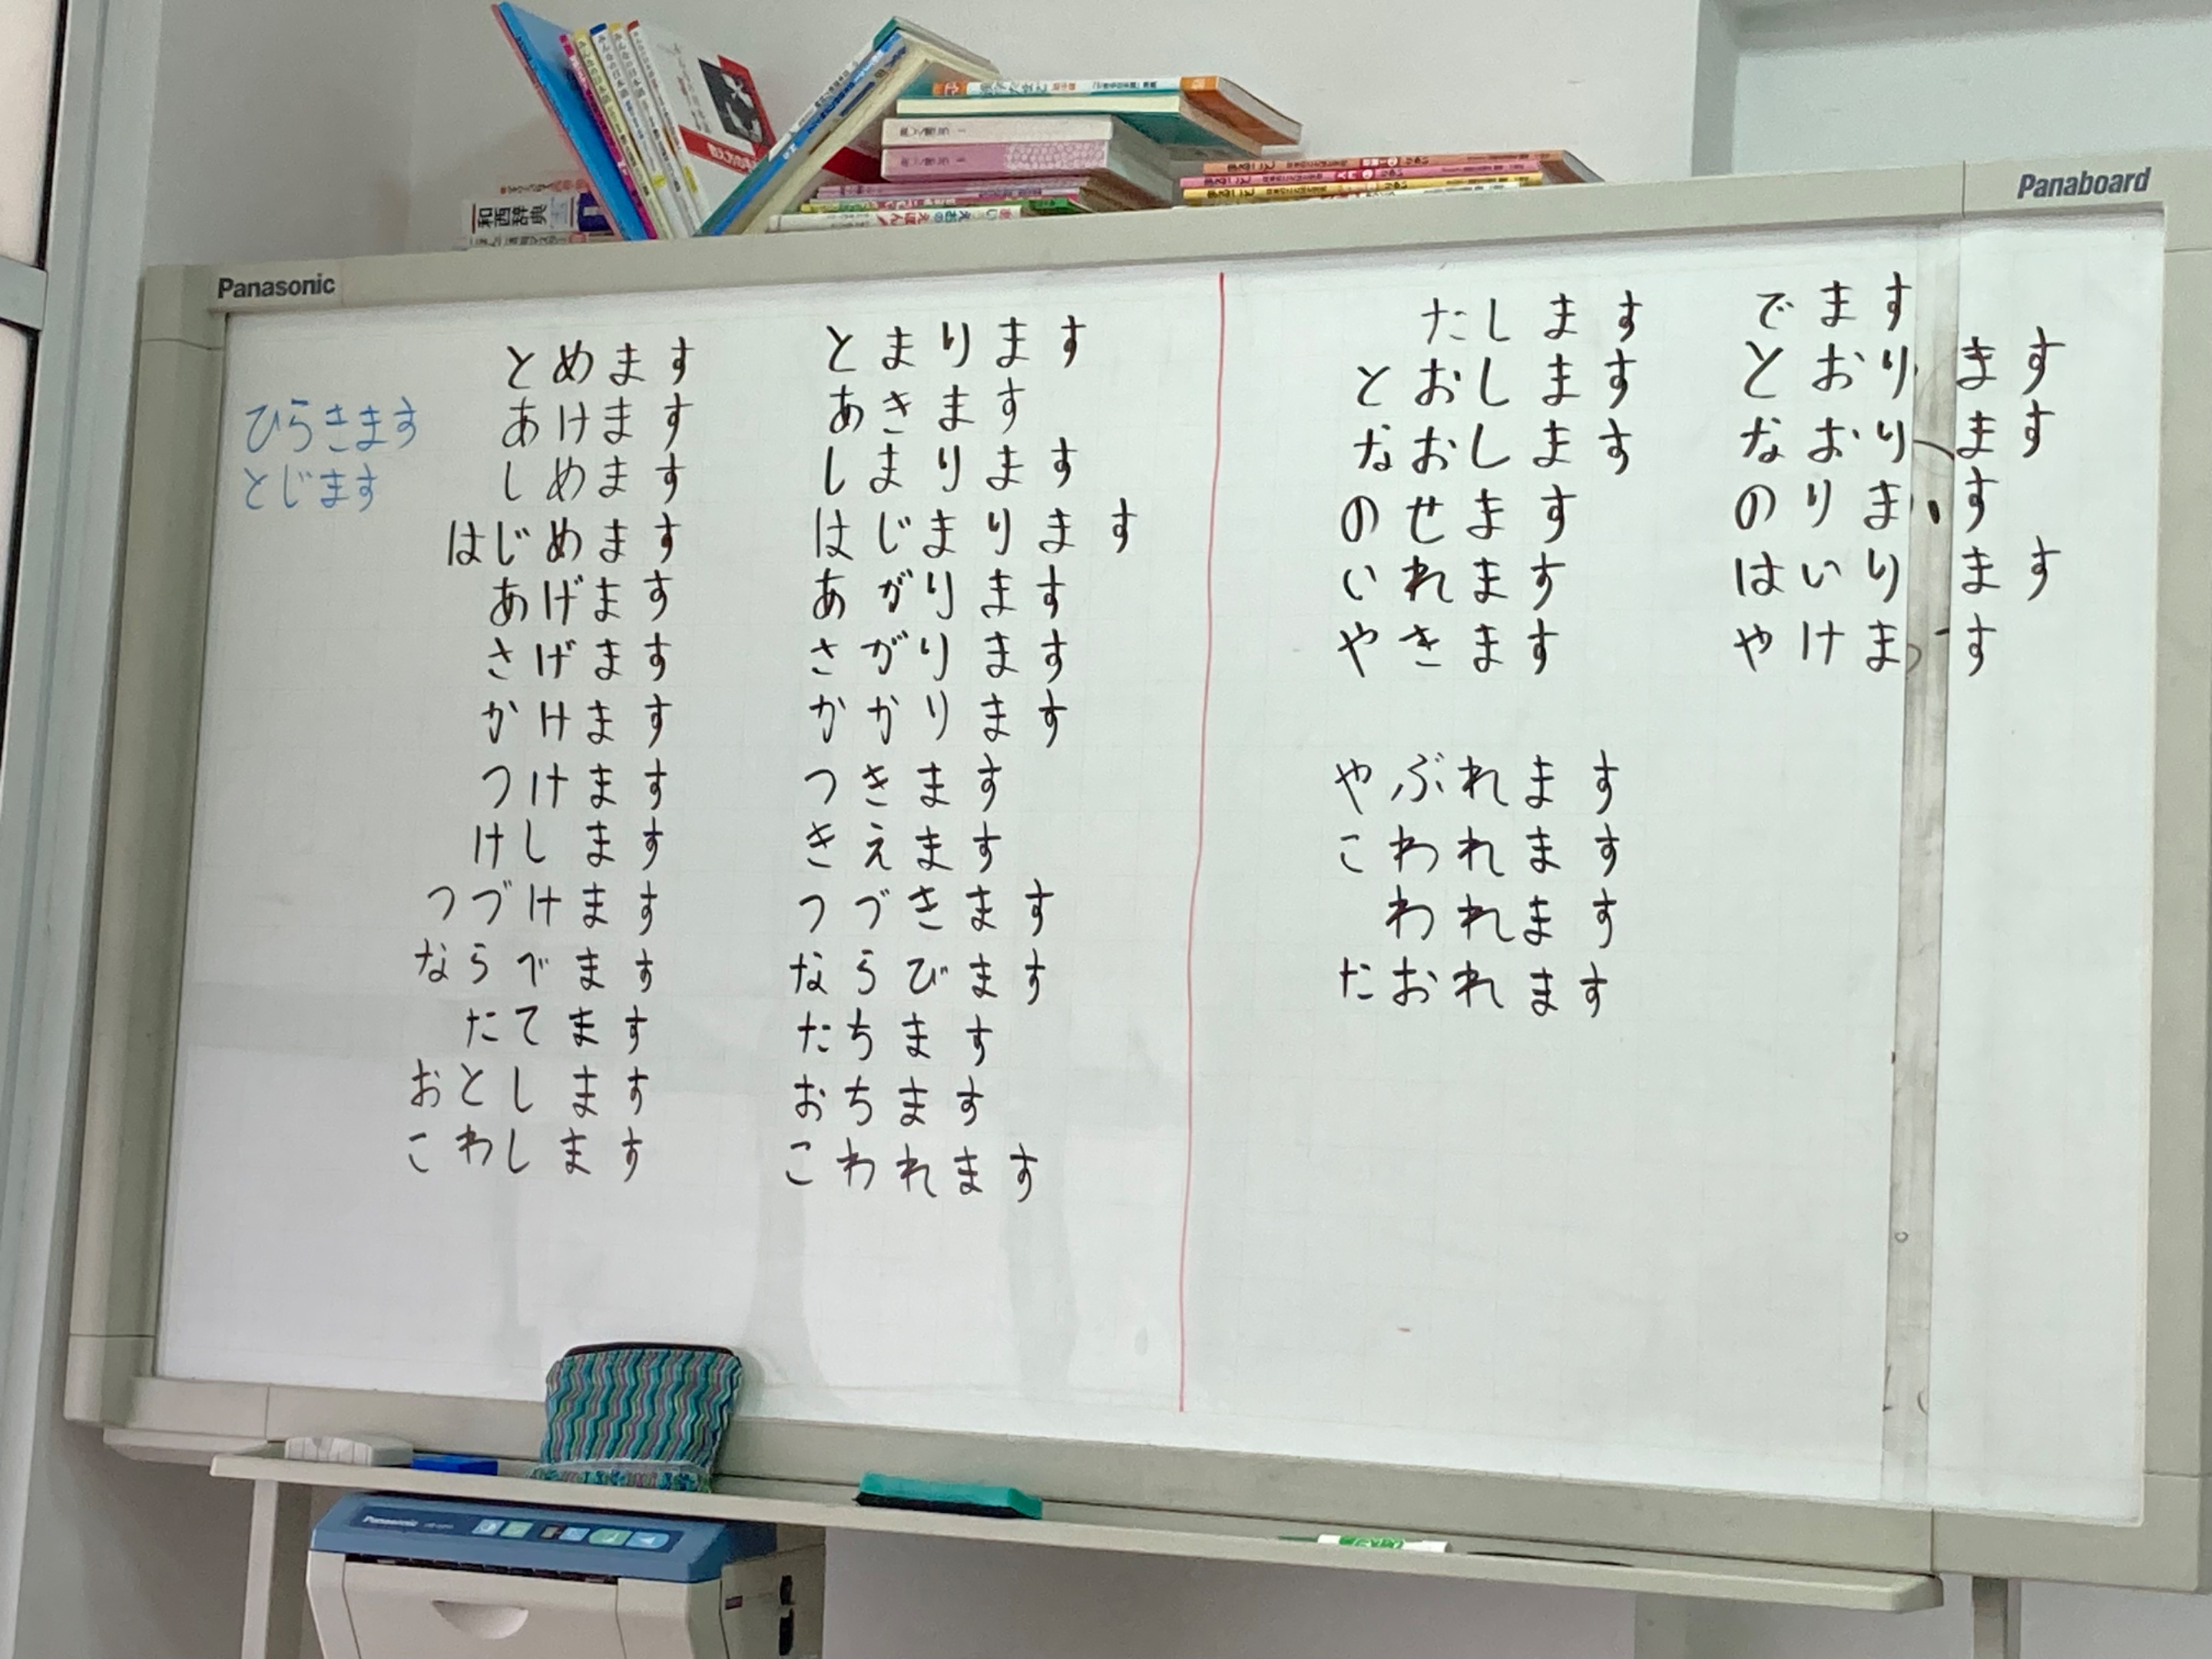 和西辞典
あいうえおのえほん
Panasonic
Panaboard
ひらきます
とじます
とめます
あけます
しめます
はじめます
あげます
さげます
かけます
つけます
けします
つづけます
ならべます
たてます
おとします
こわします
とまります
あきます
しまります
はじまります
あがります
さがります
かかります
つきます
きえます
つづきます
ならびます
たちます
おちます
こわれます
だします
とおします
なおします
のせます
いれます
やきます
やぶれます
こわれます
われます
たおれます
でます
とおります
なおります
のります
はいります
やけます
Panasonic